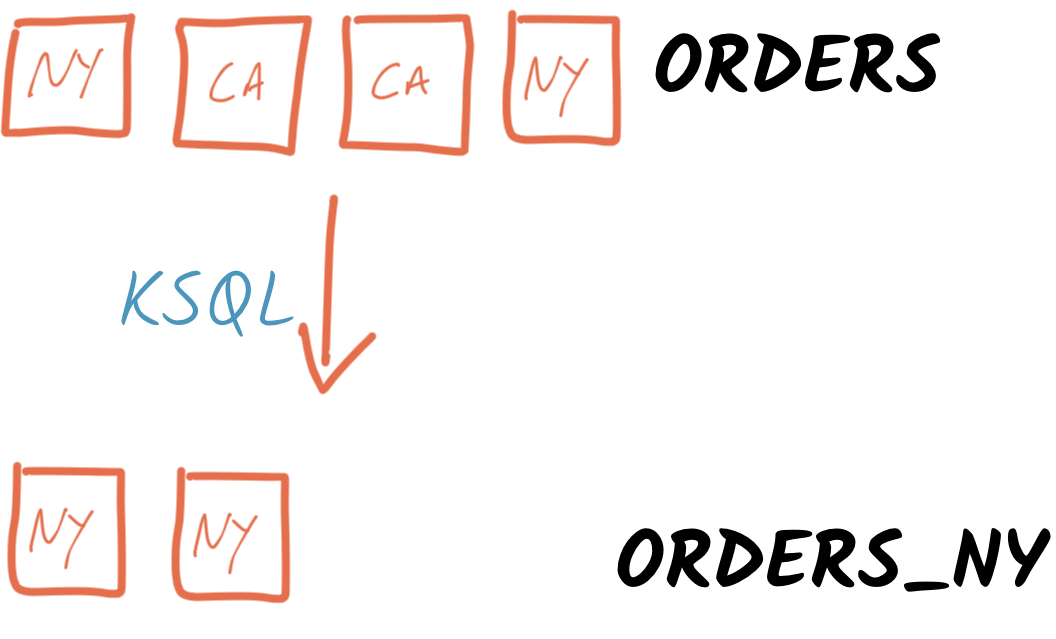 NY CA CA NY ORDERS
KSQL
NY NY ORDERS_NY